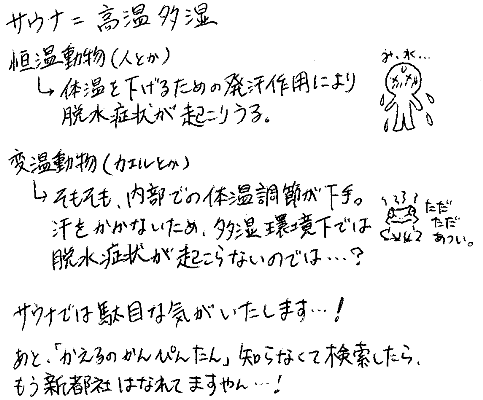 サウナ = 高温多湿
恒温動物(人とか)
み、水…
↳ 体温を下げるための発汗作用により
脱水症状が起こりうる。
変温動物(カエルとか)
↳ そもそも、内部での体温調節が下手。
汗をかかないため、多湿環境下では
脱水症状が起こらないのでは…?
ただ
ただ
あつい。
サウナでは駄目な気がいたします…!
あと、「かえるのかんぴんたん」知らなくて検索したら、
もう新都社はなれてますやん…!